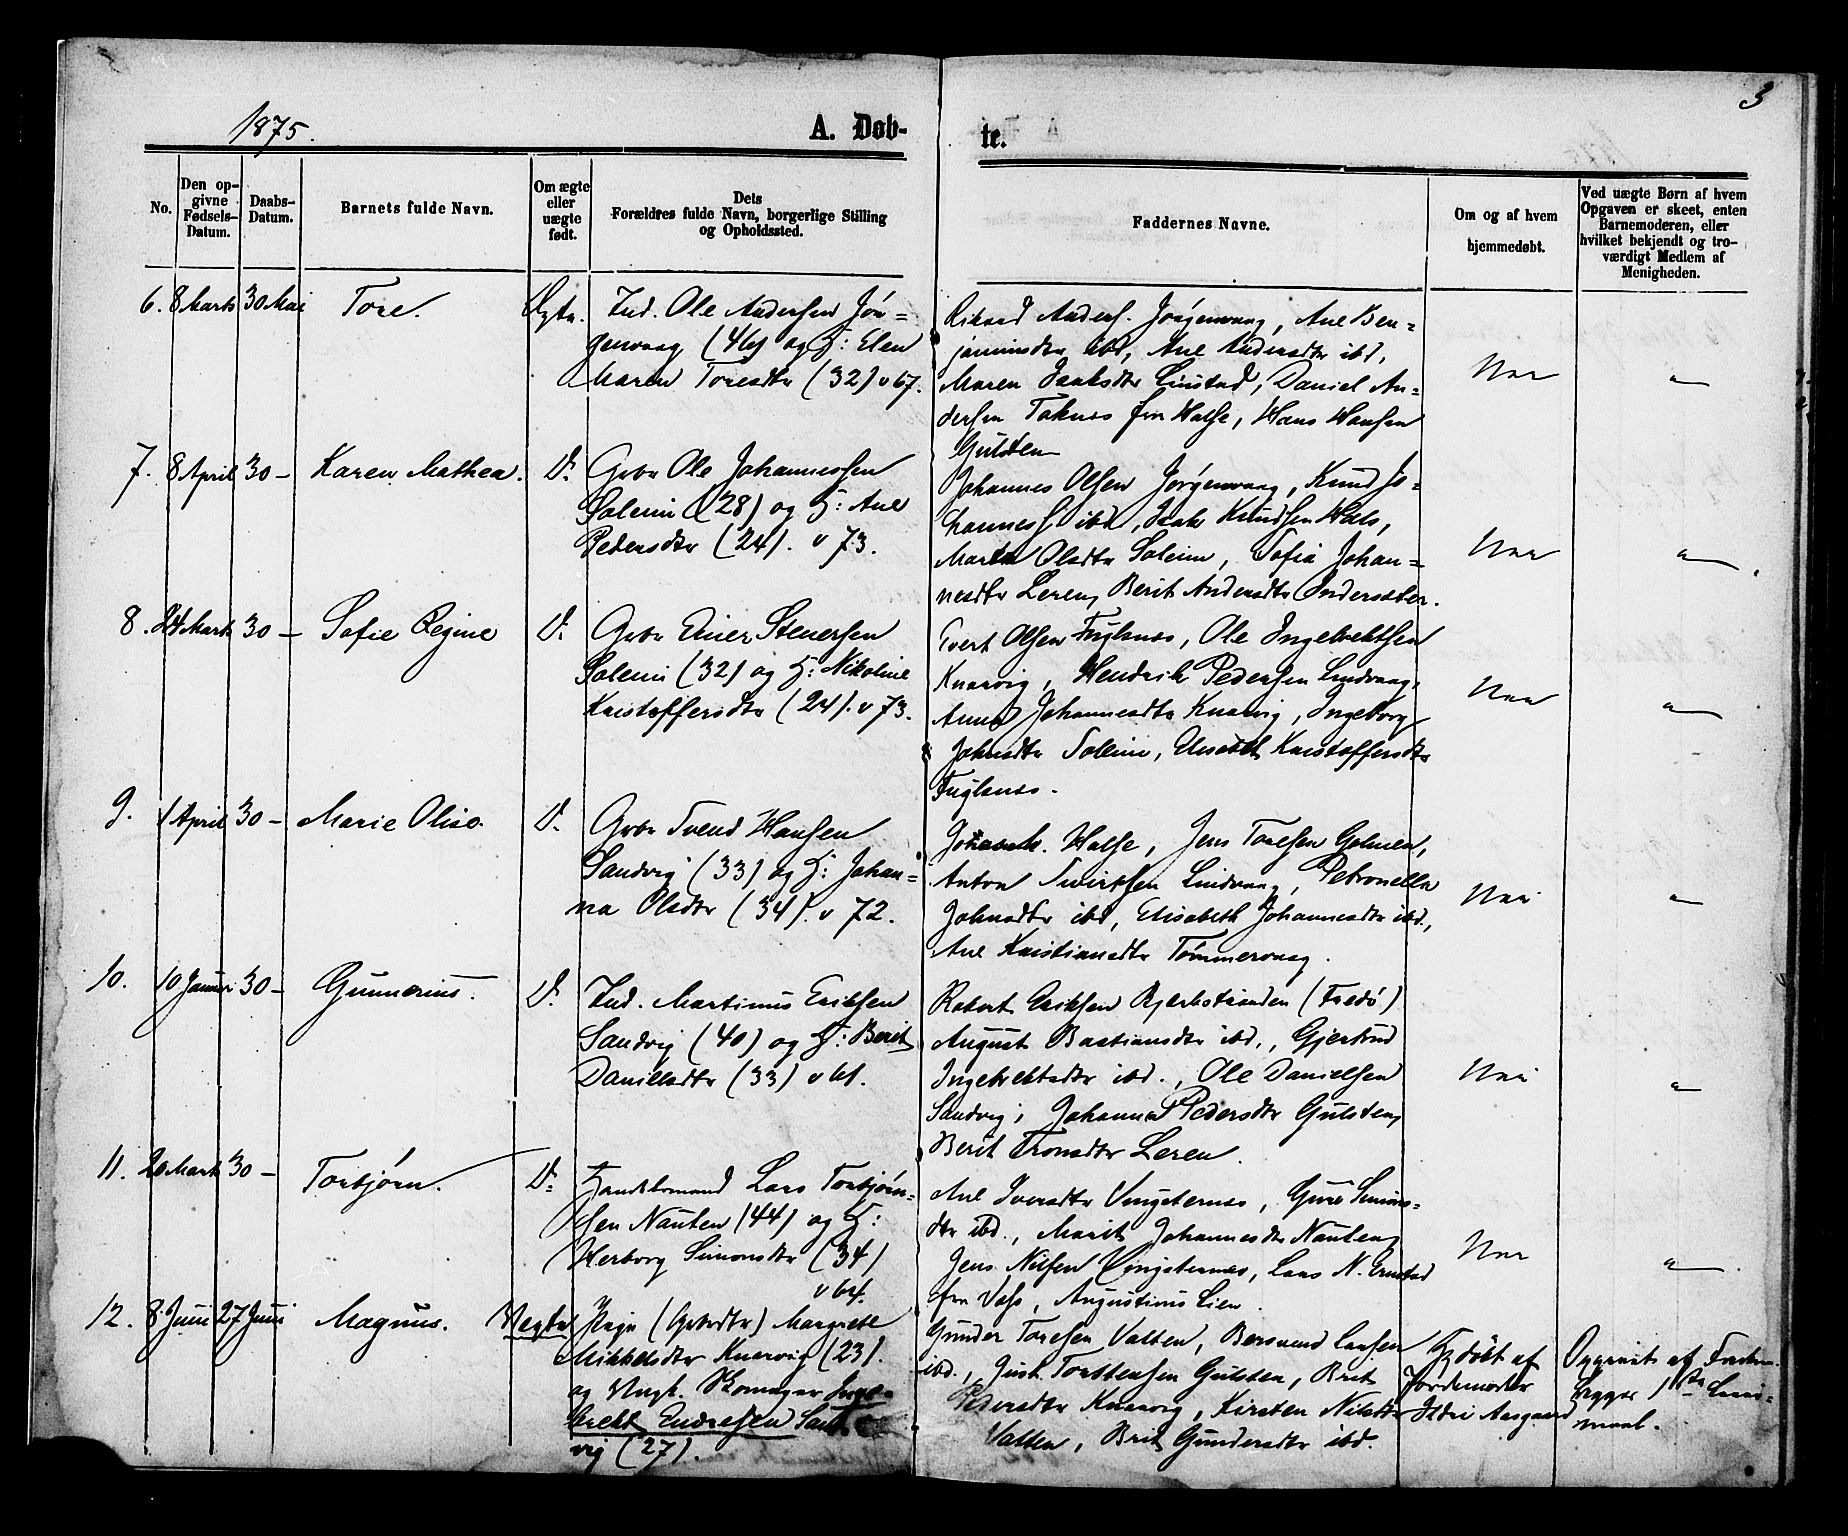 3
1875.
A. Døb-
te.
No.
Den op-
givne
Fødsels-
Datum.
Daabs-
Datum.
Barnets fulde Navn.
Om ægte
eller
uægte
født.
Dets
Forældres fulde Navn, borgerlige Stilling
og Opholdssted.
Faddernes Navne.
Om og af hvem
hjemmedøbt.
Ved uægte Børn af hvem
Opgaven er skeet, enten
Barnemoderen, eller
hvilket bekjendt og tro-
værdigt Medlem af
Menigheden.
6. 8 Marts 30 Mai Tore. Ægte. Ind. Ole Andersen Jør-
genvaag (46) og H: Elen
Maren Toresdtr (32) v 67.
Rikard Anders. Jørgenvaag, Ane Ben-
jaminsdtr ibd, Ane Andersdtr ibd,
Maren Isaksdtr Linstad, Daniel An-
dersen Taknes fra Halse, Hans Hansen
Gulsten
Nei "
7. 8 April 30 - Karen Mathea. D. Gbr Ole Johannessen
Soleim (28) og H: Ane
Pedersdtr (24). v 73.
Johannes Olsen Jørgenvaag, Knud Jo-
hanness ibd, Isak Knudsen Hals,
Marta Olsdtr Soleim, Sofia Johan-
nesdtr Leren, Berit Andersdtr Endersæter.
Nei "
8. 24 Marts 30 - Sofie Regine D. Gbr Einer Stenersen
Soleim (32) og H: Nikoline
Kristoffersdtr (24). v 73.
Evert Olsen Fuglenes, Ole Ingebrektsen
Knarvig, Hendrik Pedersen Lindvaag,
Anne Johannesdtr Knarvig, Ingeborg
Johnsdtr Soleim, Elisabet Kristoffersdtr
Fuglenes.
Nei "
9. 1 April 30 - Marie Oliso. D. Gbr Svend Hansen
Sandvig (33) og H: Johan-
na Olsdtr (34). v 72.
Halse, Jens Toresen Golmen,
Anton Sivertsen Lindvaag, Petronella
Johnsdtr ibd, Elisabeth Johannesdtr ibd.,
Ane Kristiansdtr Tømmervaag.
Nei "
10. 10 Januar 30 - Gunnerius. D. Ind. Martinus Eriksen
Sandvig (40) og H: Berit
Danielsdtr (33) v 61.
Robert Eriksen Bjerkestranden (Fredø)
August Bastiansdtr ibd., Gjertrud
Ingebrektsdtr ibd., Ole Danielsen
Sandvig, Johanna Pedersdtr Gulsten,
Berit Tronsdtr Leren.
Nei "
11. 20 Marts 30 - Torbjørn. D. Handelsmand Lars Torbjørn-
sen Nausten (44) og H:
Herborg Simonsdtr (34)
v 64.
Ane Iversdtr Vingsternes, Guri Simons-
dtr ibd., Marit Johannesdtr Nausten,
Jens Nilsen Vingsternes, Lars N. Ernstad
fra Vos, Augustinus Lien.
Nei "
12. 8 Juni 27 Juni Magnus. Uægte Pige (Gbrdtr) Margrete
Mikkelsdtr Knarvig (23).
og Ungk. Skomager Inge-
brekt Endresen Sand-
vig (27).
Gunder Toresen Valten, Bersvend Larsen
ibd., Just Torstensen Gulsten, Brit
Pedersdtr Knarvig, Kirsten Nilsdtr
Valten, Brit Gundersdtr ibd.
Hjdøbt af
Jordemoder
Ildri Aasgaard
Opgivet af Faderen.
begges 1ste Leier-
maal.